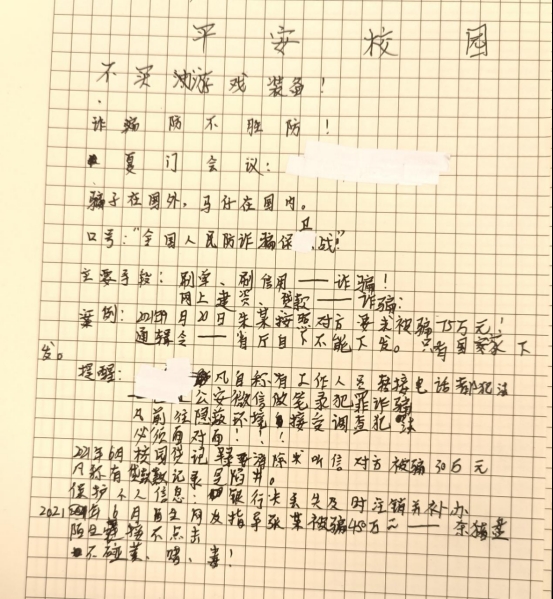 平安校园
不买游戏装备!
诈骗防不胜防!
厦门会议:
骗子在国外,马仔在国内。
口号:"全国人民防诈骗保 战"
主要手段:刷单、刷信用——诈骗!
网上 贷款——诈骗:
案例:2021年9月20日朱某按照对方要求被骗75万元!
通辑令——省厅自下不能下发。只有国家下
发。
提醒: 凡自称有工作人员转接电话都犯法
公安微信做笔录犯罪诈骗
凡前往隐蔽环境接受调查犯
必须面对面!!!
2021年6月校园贷记录 消除 听信对方被骗30万元
凡称有贷款记录是陷井。
保护个人信息: 银行卡丢失及时注销并补办
2021年6月 网友指导张某被骗45万元——杀猪盘
陌生链接不点击
不碰黄、赌、毒!